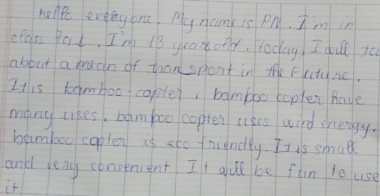 hello everyone. My name is PN. I'm in
class 7a1. I'm 13 years old. Today, I will
about a mean of transport in the future.
It is bamboo-copter, bamboo copter have
many uses. bamboo copter uses wind energy.
bamboo copter is eco friendly. It is small
and very convenient. It will be fun to use
it